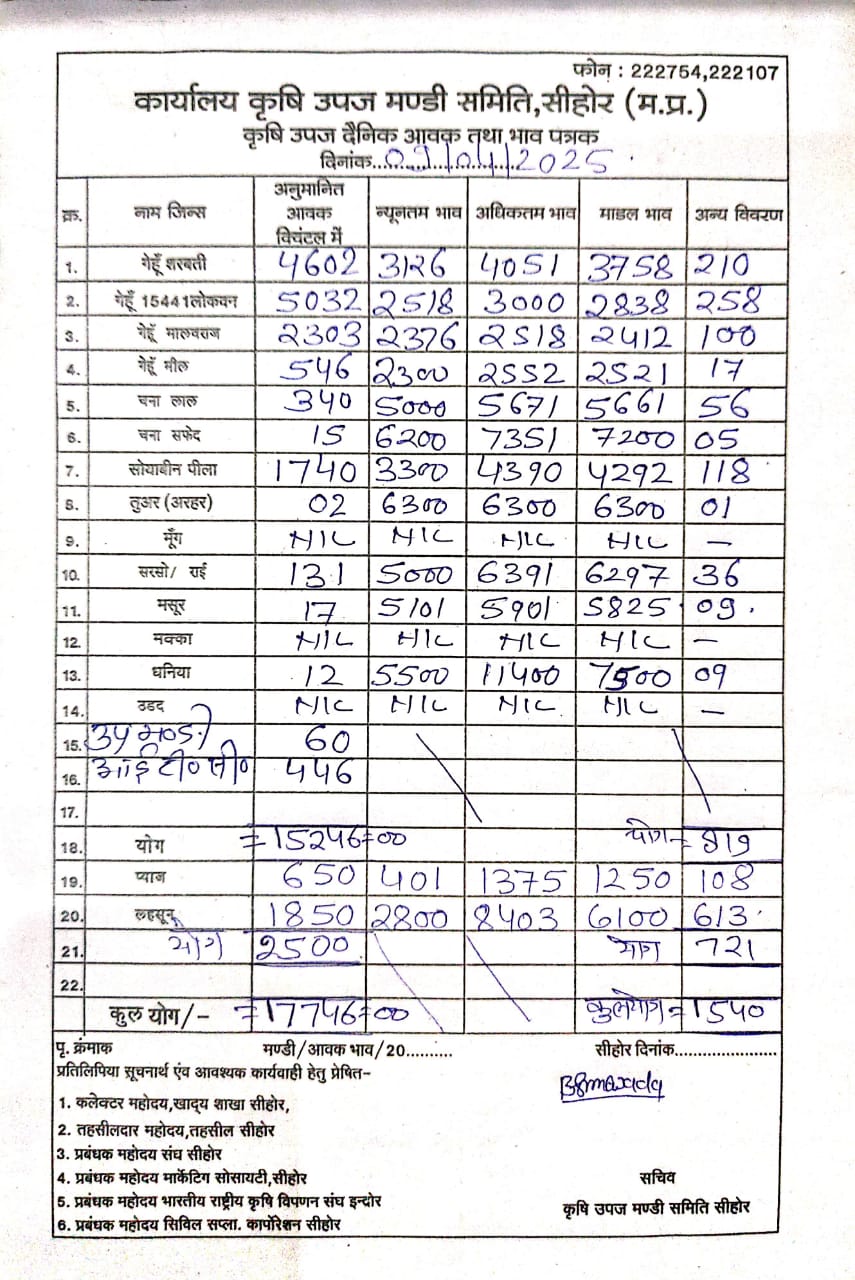 फोन : 222754,222107
कार्यालय कृषि उपज मण्डी समिति,सीहोर (म.प्र.)
कृषि उपज दैनिक आवक तथा भाव पत्रक
दिनांक 09/04/2025
क्र. नाम जिन्स अनुमानित आवक क्विंटल में न्यूनतम भाव अधिकतम भाव माडल भाव अन्य विवरण
1. गेहूँ शरबती 4602 3126 4051 3758 210
2. गेहूँ 15441लोकवन 5032 2518 3000 2838 258
3. गेहूँ मालवराज 2303 2376 2518 2412 100
4. गेहूँ मील 546 2300 2552 2521 17
5. चना लाल 340 5000 5671 5661 56
6. चना सफेद 15 6200 7351 7200 05
7. सोयाबीन पीला 1740 3300 4390 4292 118
8. तुअर (अरहर) 02 6300 6300 6300 01
9. मूँग NIL NIL NIL NIL –
10. सरसो/ राई 131 5000 6391 6297 36
11. मसूर 17 5101 5901 5825 09
12. मक्का NIL NIL NIL NIL –
13. धनिया 12 5500 11400 7500 09
14. उडद NIL NIL NIL NIL –
15. उप मण्डी 60
16. आई टी० सी० 446
17.
18. योग =15246=00 योग= 919
19. प्याज 650 401 1375 1250 108
20. लहसून 1850 2800 8403 6100 613
21. योग 2500 योग 721
22.
कुल योग/- =17746=00 कुलयोग =1540
पृ. क्रंमाक मण्डी/आवक भाव/20.......... सीहोर दिनांक.......................
प्रतिलिपिया सूचनार्थ एंव आवश्यक कार्यवाही हेतु प्रेषित–
1. कलेक्टर महोदय,खाद्य शाखा सीहोर,
2. तहसीलदार महोदय,तहसील सीहोर
3. प्रबंधक महोदय संघ सीहोर
4. प्रबंधक महोदय मार्केटिग सोसायटी,सीहोर
सचिव
5. प्रबंधक महोदय भारतीय राष्ट्रीय कृषि विपणन संघ इन्दोर
कृषि उपज मण्डी समिति सीहोर
6. प्रबंधक महोदय सिविल सप्ला. कार्पोरेशन सीहोर